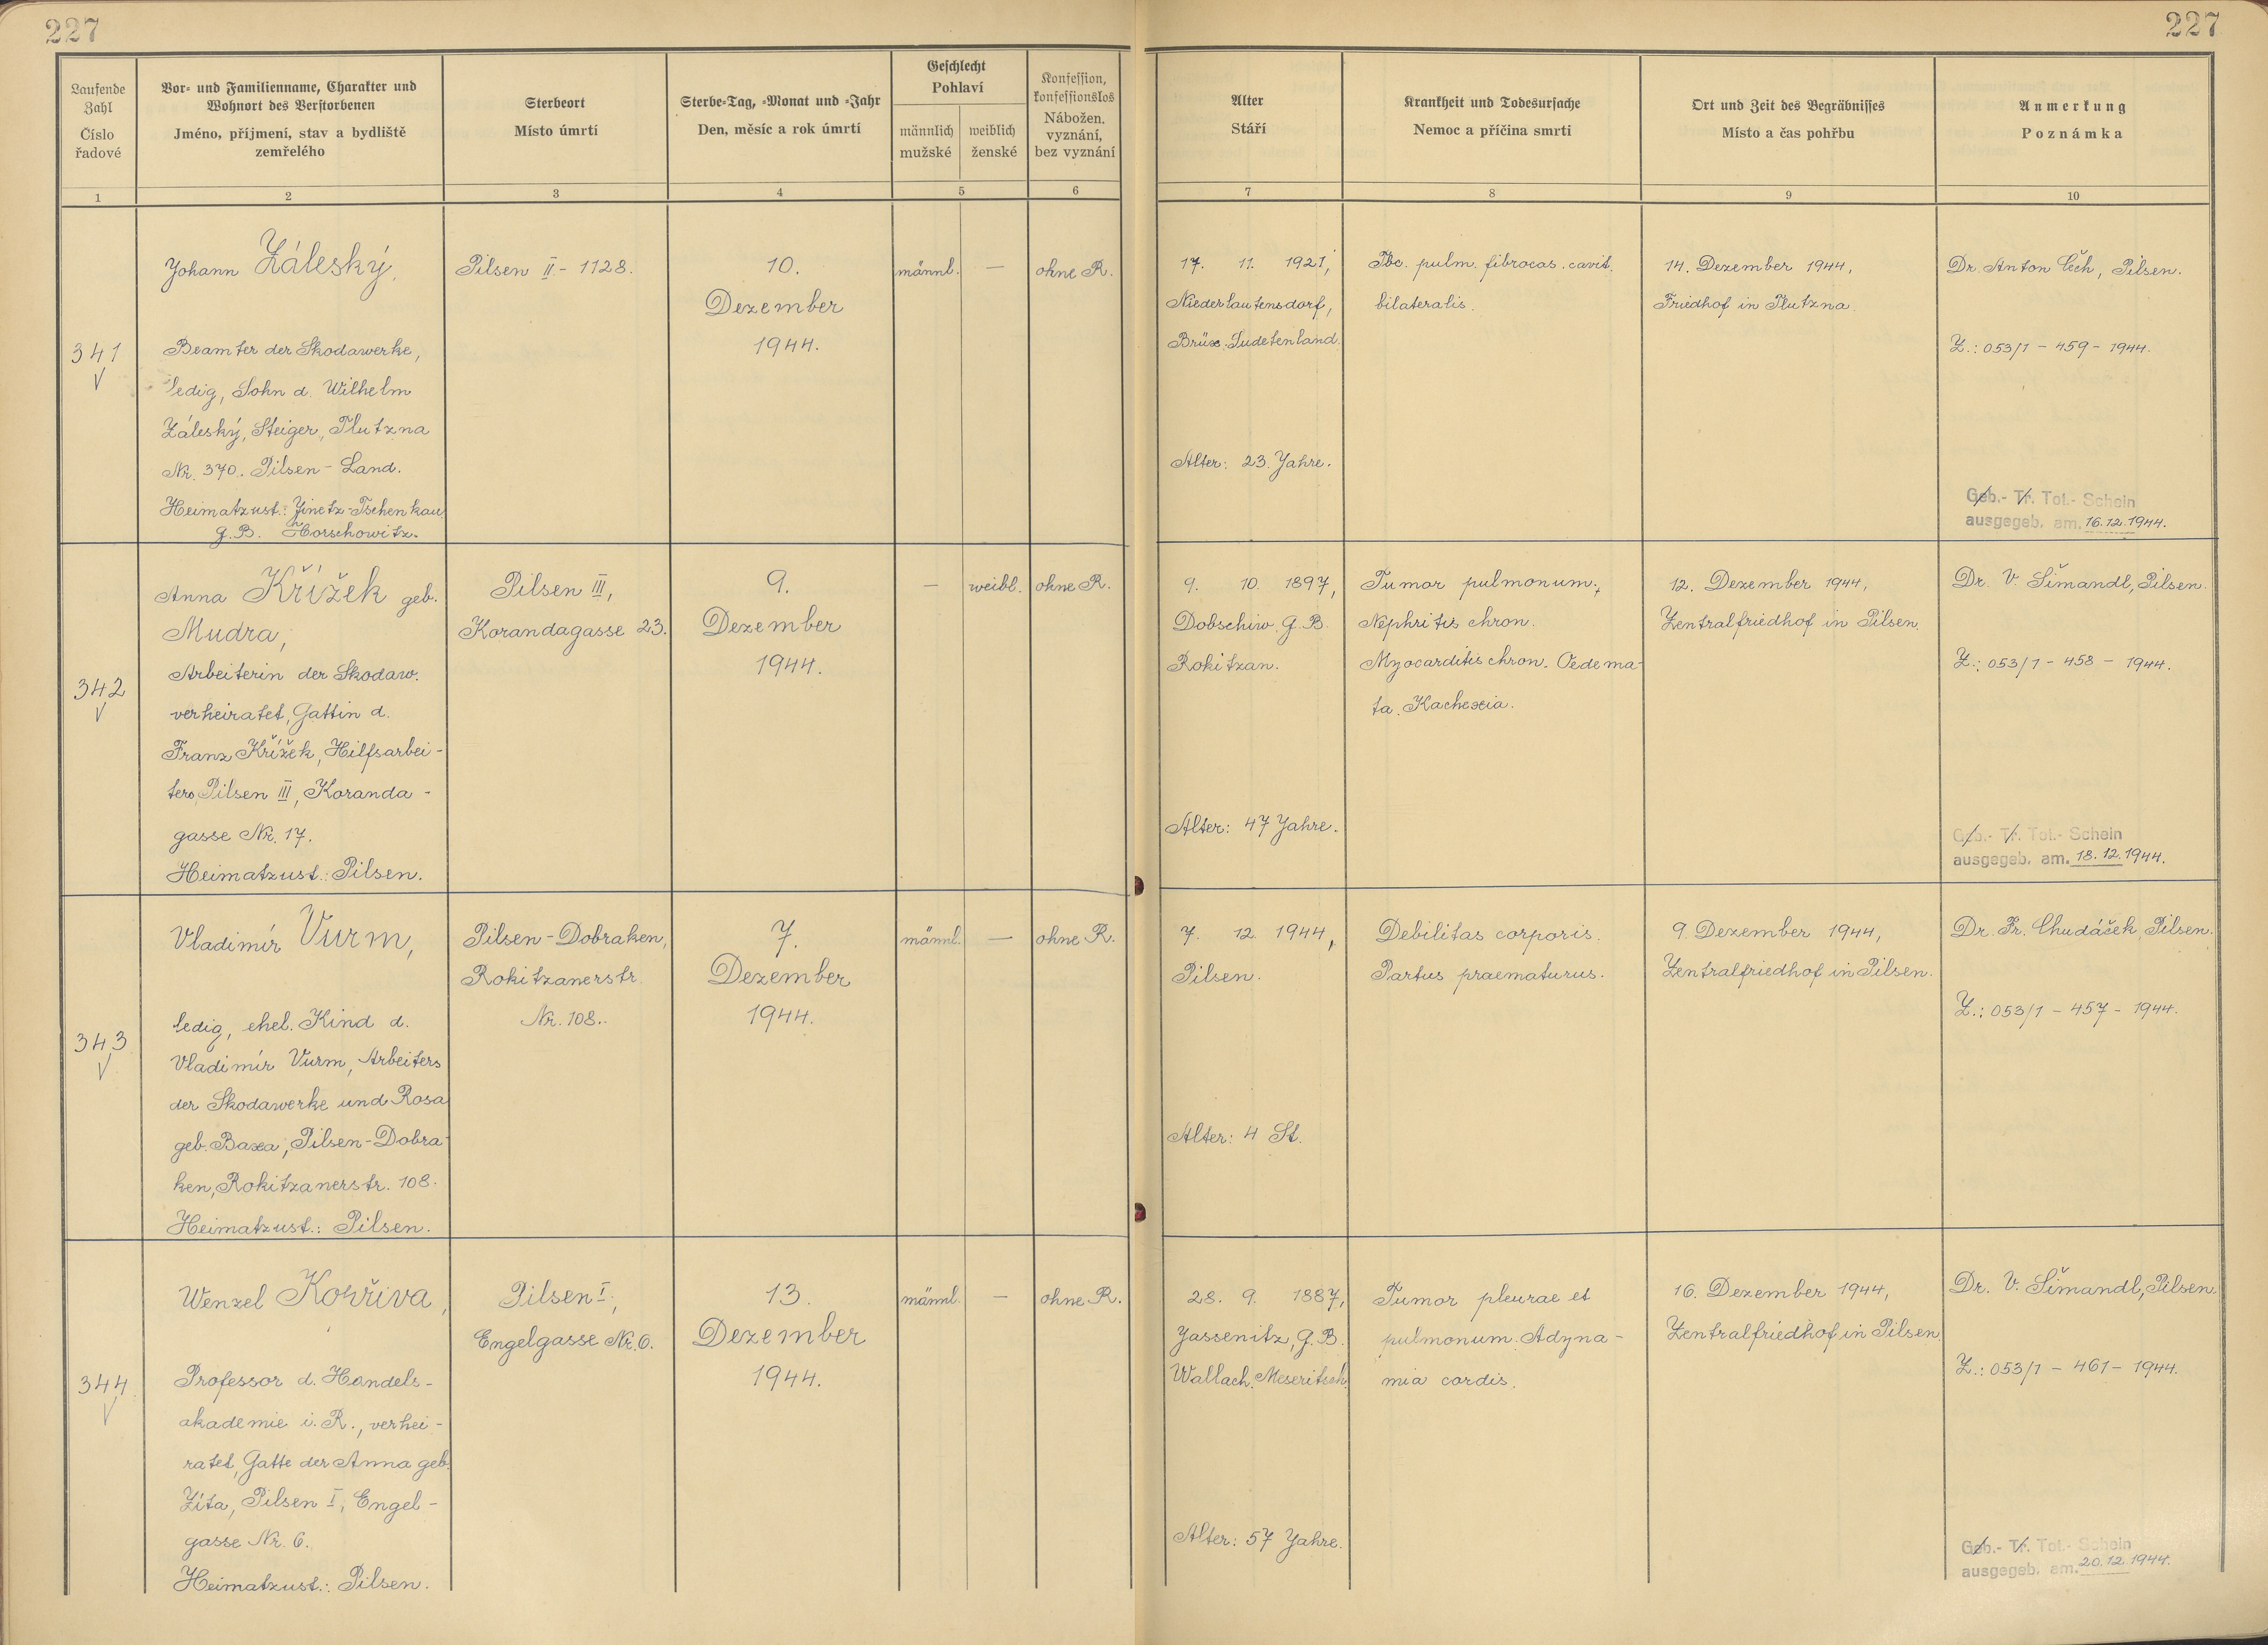 227
227
Laufende
Zahl
Číslo
řadové
Vor- und Familienname, Charakter und
Wohnort des Verstorbenen
Jméno, příjmení, stav a bydliště
zemřelého
Sterbeort
Místo úmrtí
Sterbe-Tag, -Monat und -Jahr
Den, měsíc a rok úmrtí
Geschlecht
Pohlaví
männlich
mužské
weiblich
ženské
Konfession,
konfessionslos
Nábožen.
vyznání,
bez vyznání
Alter
Stáří
Krankheit und Todesursache
Nemoc a příčina smrti
Ort und Zeit des Begräbnisses
Místo a čas pohřbu
Anmerkung
Poznámka
1
2
3
4
5
6
7
8
9
10
341
Johann Záleský,
Beamter der Skodawerke,
ledig, Sohn d. Wilhelm
Záleský, Steiger, Tlutzna
Nr. 370. Pilsen-Land.
Heimatzust.: Jinetz-Tschenkau
g.B. Horschowitz.
Pilsen II - 1128.
10.
Dezember
1944.
männl.
—
ohne R.
17. 11. 1921,
Niederlautensdorf,
Brüx. Sudetenland.
Alter: 23 Jahre.
Tbc. pulm. fibrocas. cavit.
bilateralis.
14. Dezember 1944,
Friedhof in Tlutzna.
Dr. Anton Čech, Pilsen.
Z.: 053/1 - 459 - 1944.
Geb.- Tr. Tot.- Schein
ausgegeb. am. 16.12.1944.
342
Anna Křížek geb.
Mudra,
Arbeiterin der Skodaw.
verheiratet, Gattin d.
Franz Křížek, Hilfsarbei-
ters, Pilsen III, Koranda-
gasse Nr. 17.
Heimatzust.: Pilsen.
Pilsen III,
Korandagasse 23.
9.
Dezember
1944.
—
weibl.
ohne R.
9. 10. 1897,
Dobschiw, G.B.
Rokitzan.
Alter: 47 Jahre.
Tumor pulmonum,
Nephritis chron.
Myocarditis chron. Oedema-
ta. Kachexia.
12. Dezember 1944,
Zentralfriedhof in Pilsen.
Dr. V. Šimandl, Pilsen.
Z.: 053/1 - 458 - 1944.
Geb.- Tr. Tot.- Schein
ausgegeb. am. 18.12.1944.
343
Vladimír Vurm,
ledig, ehel. Kind d.
Vladimír Vurm, Arbeiters
der Skodawerke und Rosa
geb. Baxa, Pilsen-Dobra-
ken, Rokitzanerstr. 108.
Heimatzust.: Pilsen.
Pilsen-Dobraken,
Rokitzanerstr.
Nr. 108.
7.
Dezember
1944.
männl.
—
ohne R.
7. 12. 1944,
Pilsen.
Alter: 4 St.
Debilitas corporis.
Partus praematurus.
9. Dezember 1944,
Zentralfriedhof in Pilsen.
Dr. Fr. Chudáček, Pilsen.
Z.: 053/1 - 457 - 1944.
344
Wenzel Kovřiva,
Professor d. Handels-
akademie i. R., verhei-
ratet, Gatte der Anna geb.
Zíta, Pilsen I, Engel-
gasse Nr. 6.
Heimatzust.: Pilsen.
Pilsen I,
Engelgasse Nr. 6.
13.
Dezember
1944.
männl.
—
ohne R.
28. 9. 1887,
Jassenitz, G.B.
Wallach. Meseritsch.
Alter: 57 Jahre.
Tumor pleurae et
pulmonum. Adyna-
mia cordis.
16. Dezember 1944,
Zentralfriedhof in Pilsen.
Dr. V. Šimandl, Pilsen
Z.: 053/1 - 461 - 1944.
Geb.- Tr. Tot.- Schein
ausgegeb. am. 20.12.1944.